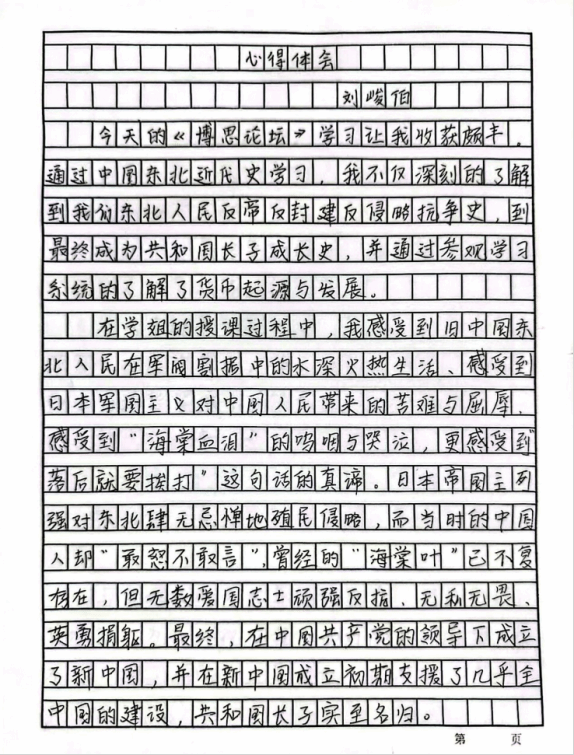 心得体会
刘峻伯
今天的《博思论坛》学习让我收获颇丰。
通过中国东北近代史学习，我不仅深刻的了解
到我们东北人民反帝反封建反侵略抗争史，到
最终成为共和国长子成长史，并通过参观学习
系统的了解了货币起源与发展。
在学姐的授课过程中，我感受到旧中国东
北人民在军阀割据中的水深火热生活、感受到
日本军国主义对中国人民带来的苦难与屈辱、
感受到“海棠血泪”的呜咽与哭泣，更感受到“
落后就要挨打”这句话的真谛。日本帝国主列
强对东北肆无忌惮地殖民侵略，而当时的中国
人却“最怒不敢言”，曾经的“海棠叶”已不复
存在，但无数爱国志士顽强反抗、无私无畏、
英勇捐躯。最终，在中国共产党的领导下成立
了新中国，并在新中国成立初期支援了几乎全
中国的建设，共和国长子实至名归。
第 页